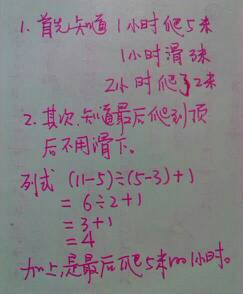 1. 首先知道 1小时爬5米
1小时滑3米
2小时爬了2米
2. 其次知道最后爬到顶
后不用滑下。
列式 (11-5)÷(5-3)+1
= 6÷2+1
=3+1
=4
加上是最后爬5米的1小时。